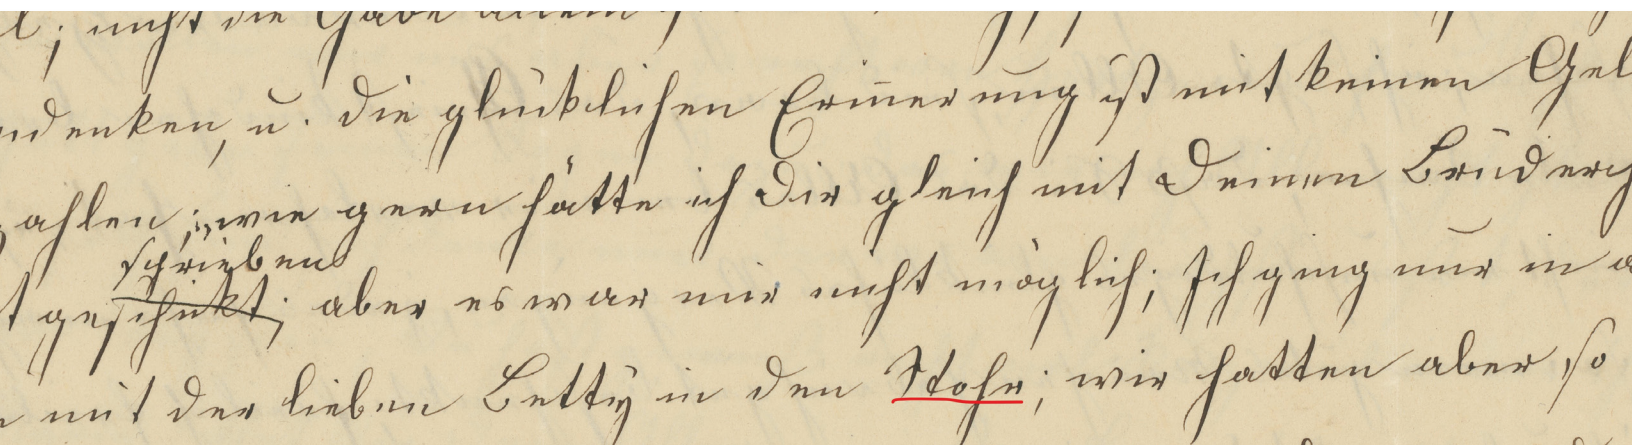 l; nicht die Gabe allein
ndenken, u. die glücklichen Erinnerung ist mit keinen Gel
zahlen; wie gern hätte ich Dir gleich mit Deinen Brüderch
schrieben
t geschikt; aber es war mir nicht möglich; Ich ging nur in d
mit der lieben Betty in den Stohr; wir hatten aber so